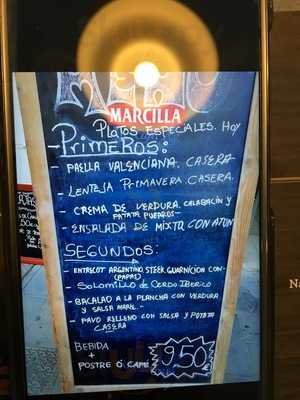 MENU
MARCILLA
PLATOS ESPECIALES. Hoy
- PRIMEROS:
- PAELLA VALENCIANA. CASERA
- LENTEJA PRIMAVERA. CASERA.
- CREMA DE VERDURA. CALABACIN Y
PATATA PUERROS-
- ENSALADA DE MIXTO CON ATUN
SEGUNDOS:
- ENTRECOT ARGENTINO, STEEK GUARNICION CON-
(PAPAS)
- SOLOMILLO DE CERDO IBERICO
- BACALAO A LA PLANCHA CON VERDURA
Y SALSA MARIS.-
- PAVO RELLENO CON SALSA Y PATATA
CASERA
BEBIDA
+
POSTRE Ó CAFE
9'50